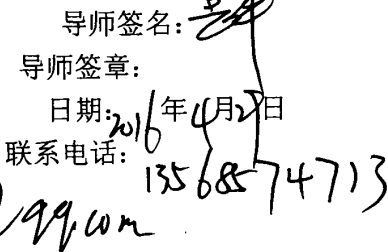 导师签名:
导师签章:
日期:2016年4月27日
联系电话:13568574713
qq.com